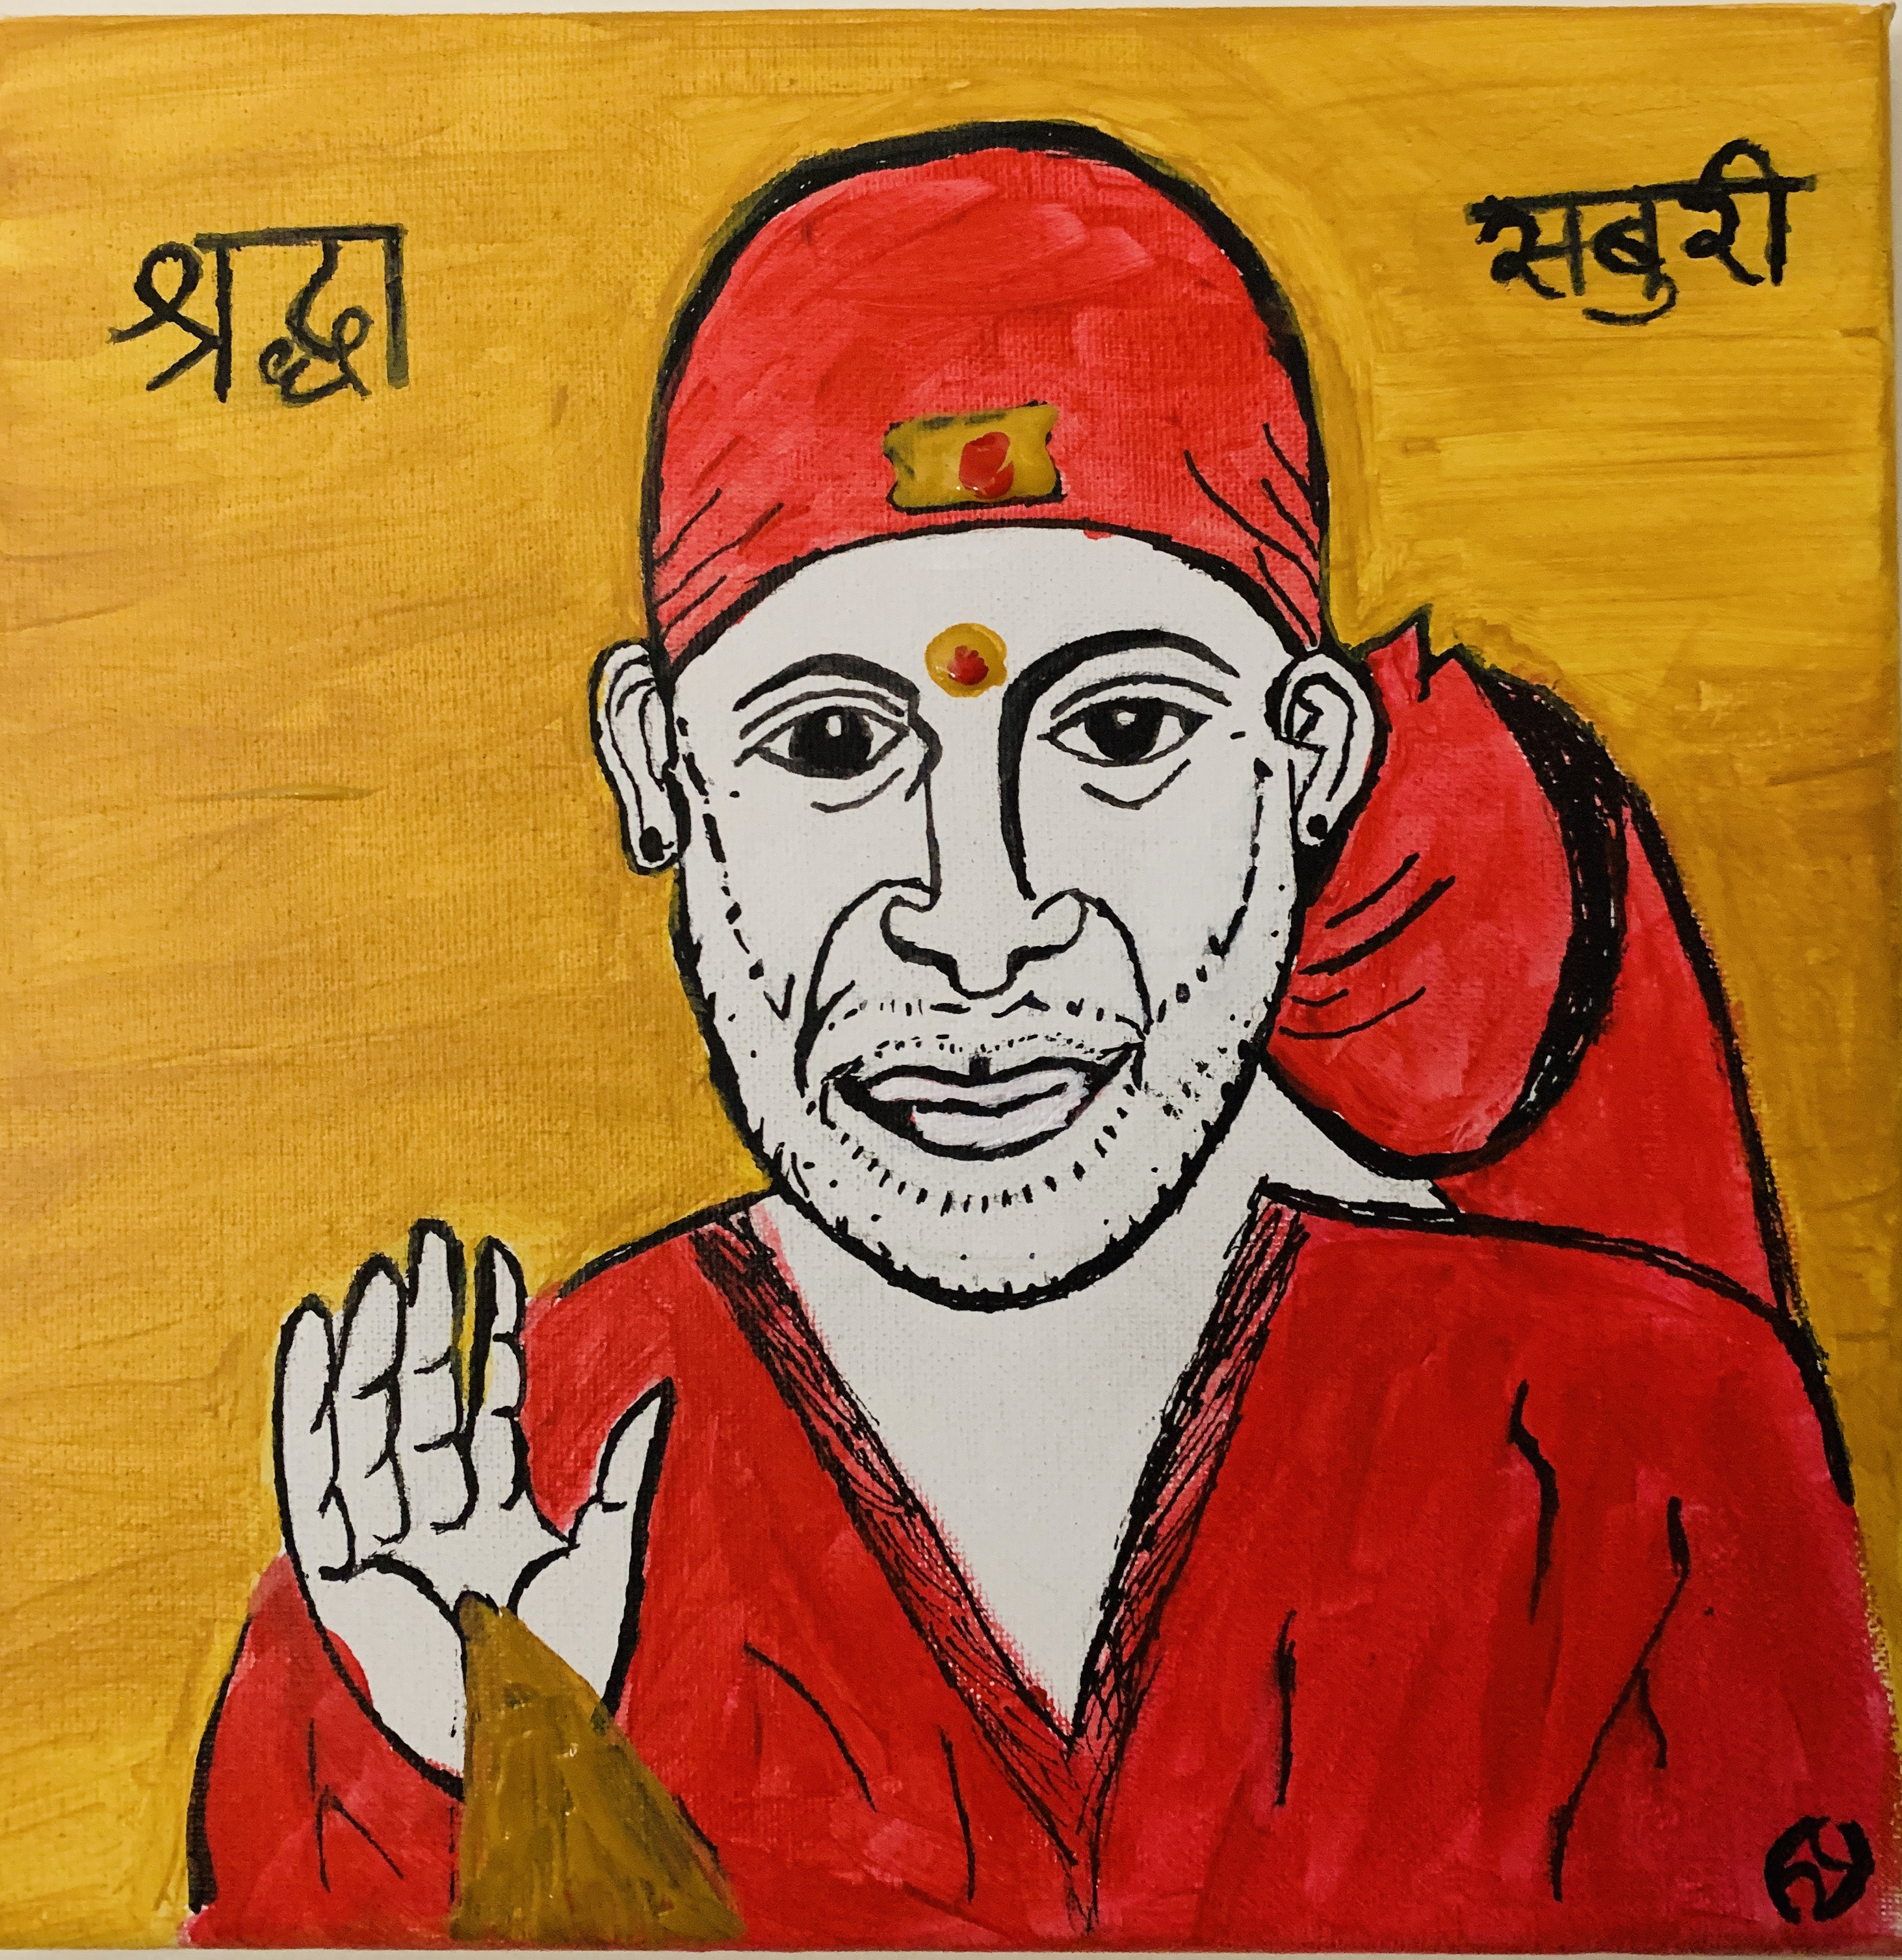 श्रद्धा
सबुरी